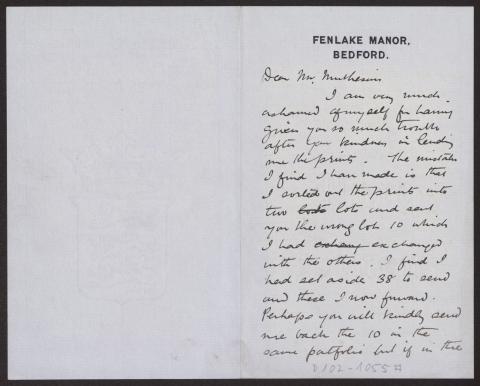 FENLAKE MANOR,
BEDFORD.
Dear Mr. Muthesius
I am very much
ashamed of myself for having
given you so much trouble
after your kindness in lending
me the prints. The mistake
I find I have made is that
I sorted out the prints into
two lots and sent
you the wrong lot 10 which
I had exchang exchanged
with the others. I find I
had set aside 38 to send
and these I now forward.
Perhaps you will kindly send
me back the 10 in the
same portfolio but if in the
D102-1055